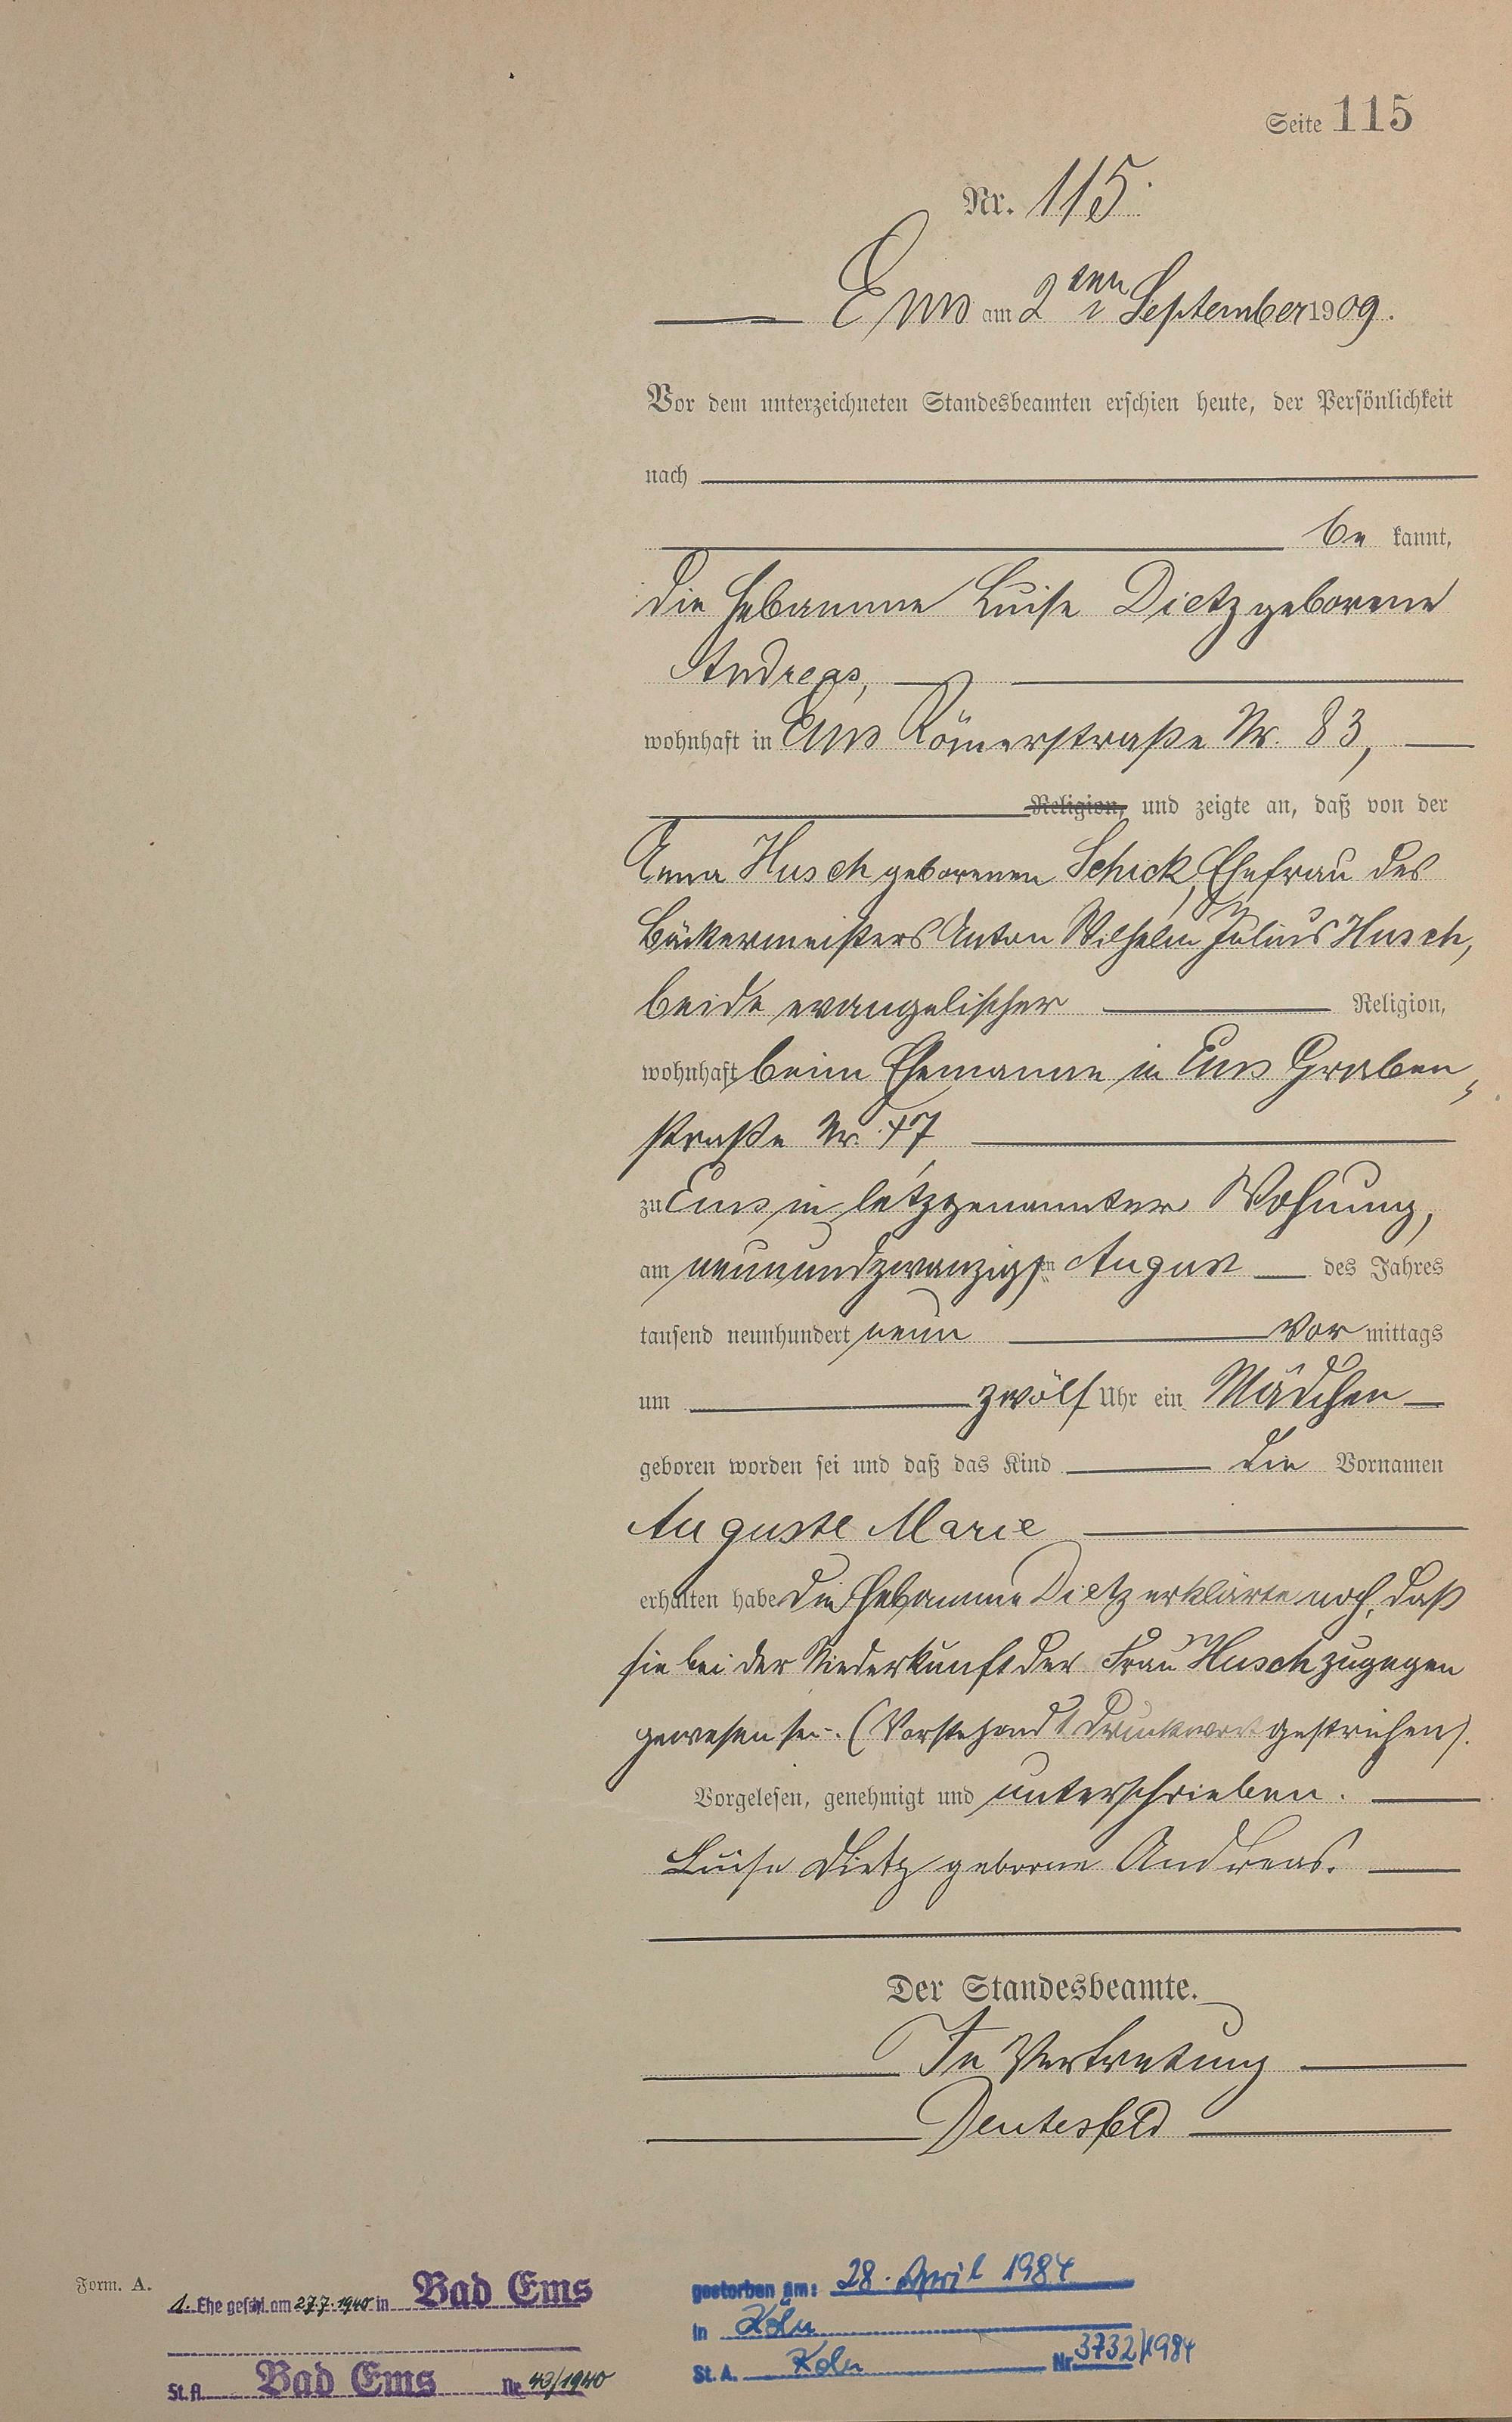 Seite 115
Nr. 115.
Ems am 2ten September 1909.
Vor dem unterzeichneten Standesbeamten erschien heute, der Persönlichkeit
nach
be kannt,
die Hebamme Luise Dietz geborene
Andreas,
wohnhaft in Ems Römerstraße Nr. 83,
Religion, und zeigte an, daß von der
Anna Husch geborenen Schick, Ehefrau des
Bäckermeisters Anton Wilhelm Julius Husch,
beide evangelischer Religion,
wohnhaft beim Ehemanne in Ems Graben-
straße Nr. 47
zu Ems in letztgenannter Wohnung,
am neunundzwanzigsten August des Jahres
tausend neunhundert neun vor mittags
um zwölf Uhr ein Mädchen
geboren worden sei und daß das Kind die Vornamen
Auguste Marie
erhalten habe Die Hebamme Dietz erklärte noch, daß
sie bei der Niederkunft der Frau Husch zugegen
gewesen sei. (Vorstehend 1 Druckwort gestrichen).
Vorgelesen, genehmigt und unterschrieben.
Luise Dietz geborne Andreas.
Der Standesbeamte.
In Vertretung
Deutesfeld
Form. A.
1. Ehe geschl. am 27.7.1940 in Bad Ems
St. A. Bad Ems Nr. /1940
gestorben am: 28. April 1984
in Köln
St. A. Köln Nr. 3732/1984